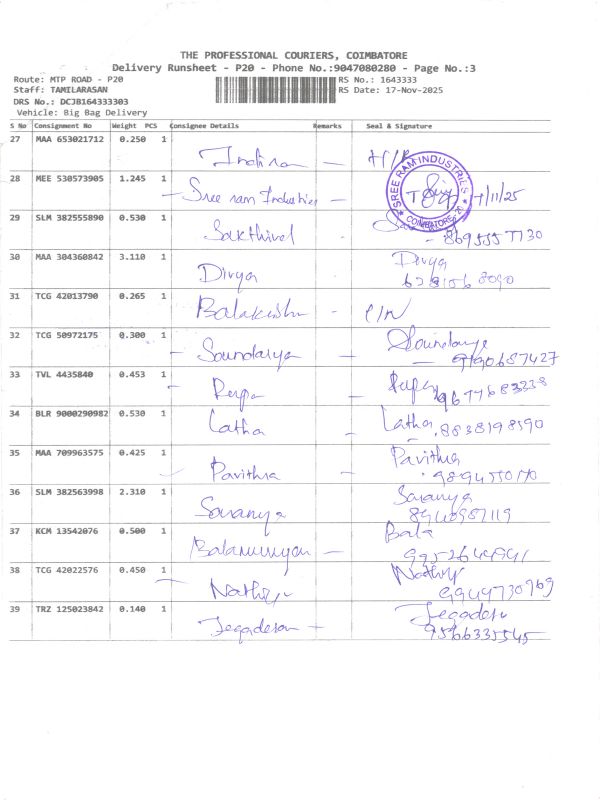 THE PROFESSIONAL COURIERS, COIMBATORE
Delivery Runsheet - P20 - Phone No.:9047080280 - Page No.:3
Route: MTP ROAD - P20 RS No.: 1643333
Staff: TAMILARASAN RS Date: 17-Nov-2025
DRS No.: DCJB164333303
Vehicle: Big Bag Delivery
S No Consignment No Weight PCS Consignee Details Remarks Seal & Signature
27 MAA 653021712 0.250 1
Indira -
28 MEE 530573905 1.245 1
Sree ram Industries - SREE RAM INDUSTRIES COIMBATORE-20 17/11/25
29 SLM 382555890 0.530 1
Sakthivel
30 MAA 304360842 3.110 1 Divya
Divya
31 TCG 42013790 0.265 1
32 TCG 50972175 0.300 1 Soundarya
Soundarya - 9190687427
33 TVL 4435840 0.453 1
34 BLR 9000290982 0.530 1 Latha
Latha - 8838198590
35 MAA 709963575 0.425 1 Pavithra
Pavithra -
36 SLM 382563998 2.310 1 Saranya
Saranya
37 KCM 13542076 0.500 1 Bala
38 TCG 42022576 0.450 1
9944730969
39 TRZ 125023842 0.140 1
Jegadesan - 9566335545